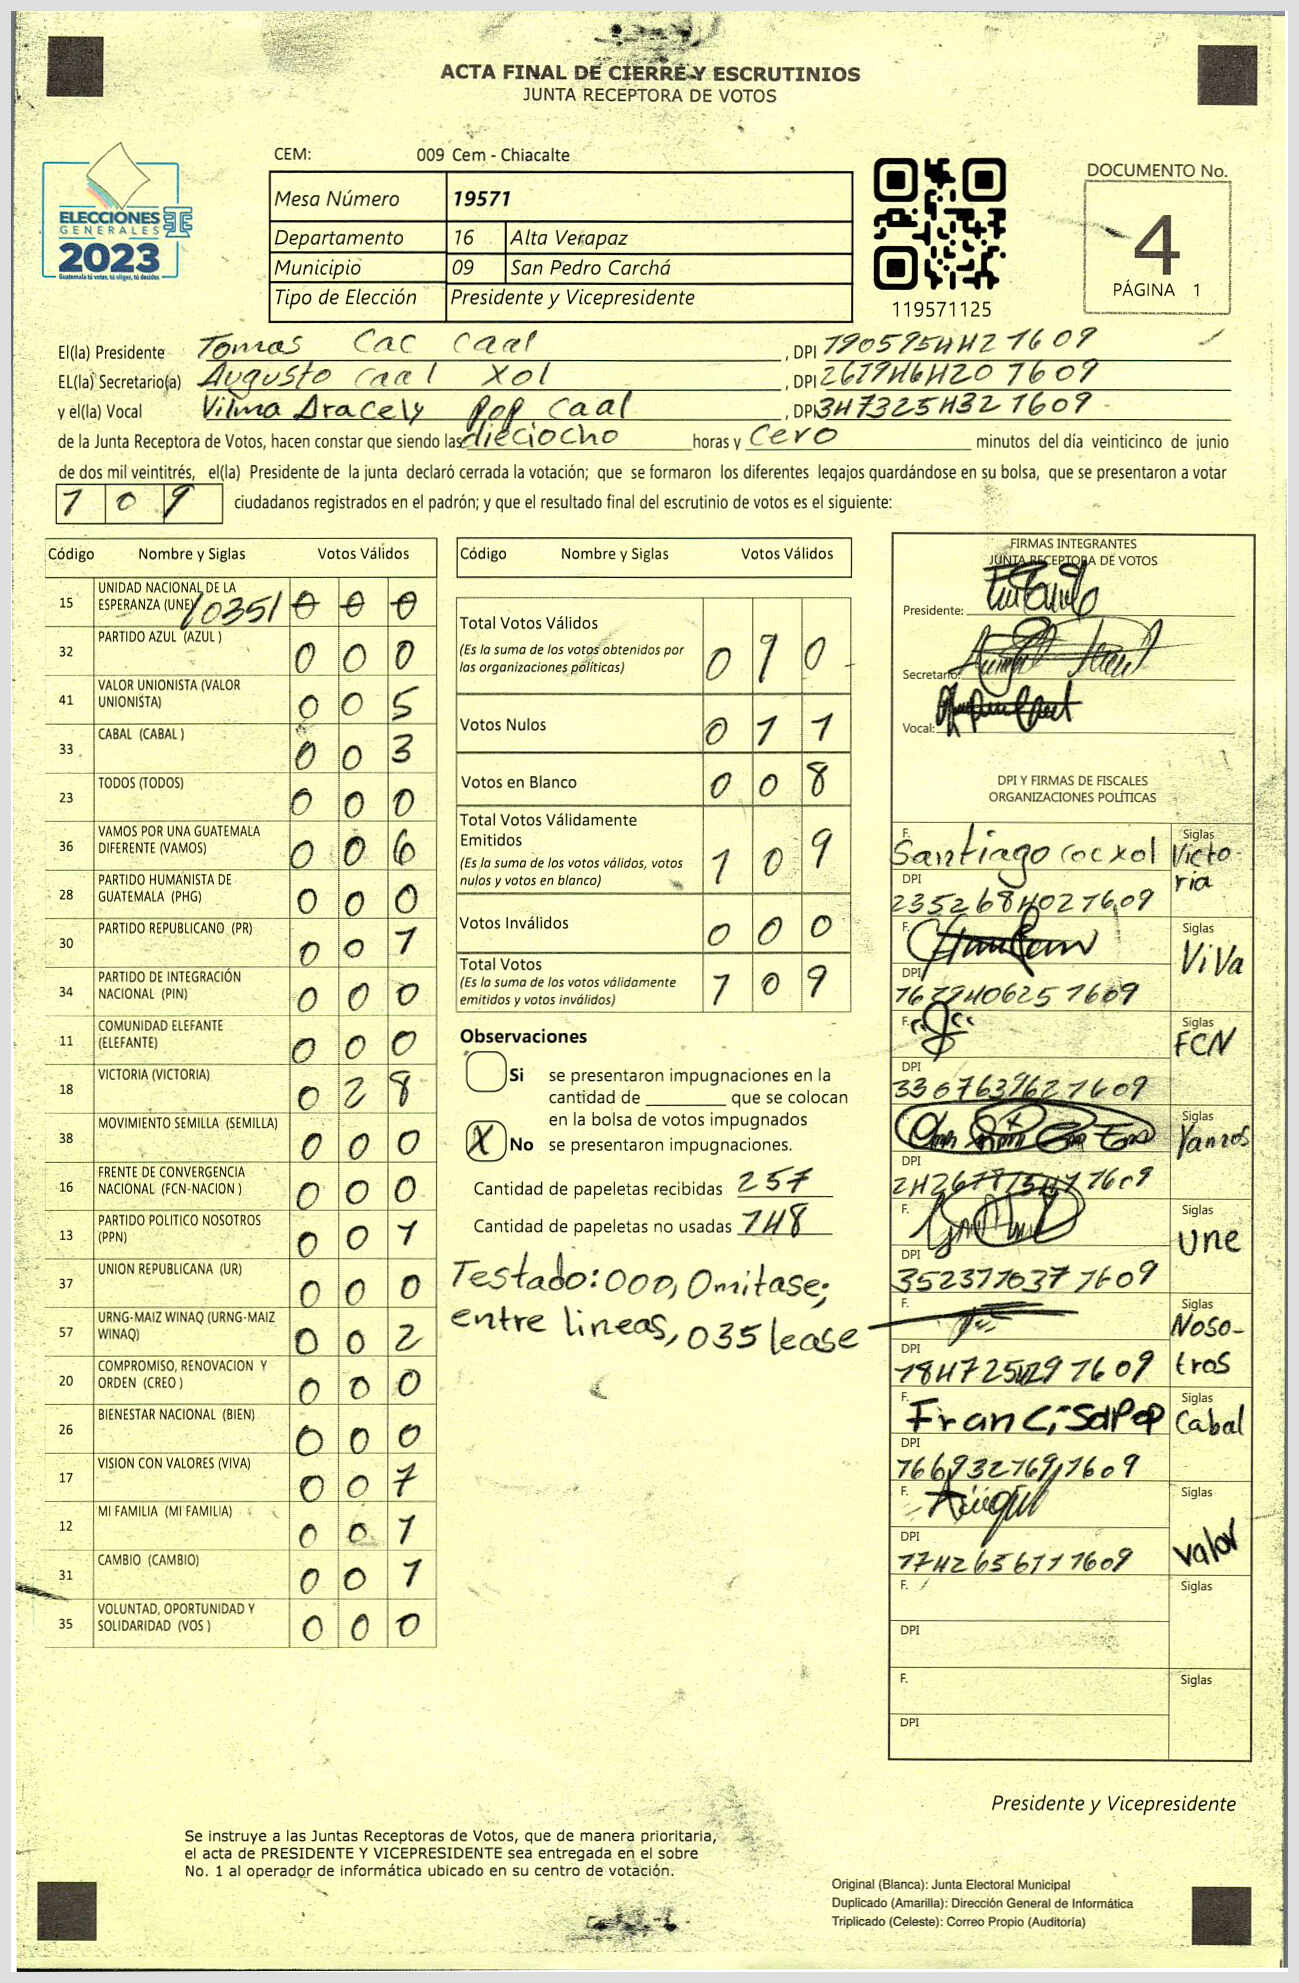 ACTA FINAL DE CIERRE Y ESCRUTINIOS
JUNTA RECEPTORA DE VOTOS
CEM: 009 Cem - Chiacalte
ELECCIONES
GENERALES
2023
Guatemala tú votas, tú eliges, tú decides
Mesa Número 19571
Departamento 16 Alta Verapaz
Municipio 09 San Pedro Carchá
Tipo de Elección Presidente y Vicepresidente
119571125
DOCUMENTO No.
4
PÁGINA 1
El(la) Presidente Tomas Cac Caal, DPI 1905954421609
EL(la) Secretario(a) Augusto caal xol, DPI 2679464201609
y el(la) Vocal Vilma Aracely pop caal, DPI 3473254321609
de la Junta Receptora de Votos, hacen constar que siendo las dieciocho horas y cero minutos del día veinticinco de junio
de dos mil veintitrés, el(la) Presidente de la junta declaró cerrada la votación; que se formaron los diferentes legajos guardándose en su bolsa, que se presentaron a votar
109 ciudadanos registrados en el padrón; y que el resultado final del escrutinio de votos es el siguiente:
Código Nombre y Siglas Votos Válidos
15 UNIDAD NACIONAL DE LA ESPERANZA (UNE) /035/ 0 0 0
32 PARTIDO AZUL (AZUL ) 0 0 0
41 VALOR UNIONISTA (VALOR UNIONISTA) 0 0 5
33 CABAL (CABAL ) 0 0 3
23 TODOS (TODOS) 0 0 0
36 VAMOS POR UNA GUATEMALA DIFERENTE (VAMOS) 0 0 6
28 PARTIDO HUMANISTA DE GUATEMALA (PHG) 0 0 0
30 PARTIDO REPUBLICANO (PR) 0 0 1
34 PARTIDO DE INTEGRACIÓN NACIONAL (PIN) 0 0 0
11 COMUNIDAD ELEFANTE (ELEFANTE) 0 0 0
18 VICTORIA (VICTORIA) 0 2 8
38 MOVIMIENTO SEMILLA (SEMILLA) 0 0 0
16 FRENTE DE CONVERGENCIA NACIONAL (FCN-NACION ) 0 0 0
13 PARTIDO POLITICO NOSOTROS (PPN) 0 0 1
37 UNION REPUBLICANA (UR) 0 0 0
57 URNG-MAIZ WINAQ (URNG-MAIZ WINAQ) 0 0 2
20 COMPROMISO, RENOVACION Y ORDEN (CREO ) 0 0 0
26 BIENESTAR NACIONAL (BIEN) 0 0 0
17 VISION CON VALORES (VIVA) 0 0 7
12 MI FAMILIA (MI FAMILIA) 0 0 1
31 CAMBIO (CAMBIO) 0 0 1
35 VOLUNTAD, OPORTUNIDAD Y SOLIDARIDAD (VOS ) 0 0 0
Código Nombre y Siglas Votos Válidos
Total Votos Válidos 0 9 0
(Es la suma de los votos obtenidos por
las organizaciones políticas)
Votos Nulos 0 1 1
Votos en Blanco 0 0 8
Total Votos Válidamente
Emitidos 1 0 9
(Es la suma de los votos válidos, votos
nulos y votos en blanco)
Votos Inválidos 0 0 0
Total Votos 1 0 9
(Es la suma de los votos válidamente
emitidos y votos inválidos)
Observaciones
Si se presentaron impugnaciones en la
cantidad de ________ que se colocan
en la bolsa de votos impugnados
X No se presentaron impugnaciones.
Cantidad de papeletas recibidas 257
Cantidad de papeletas no usadas 148
Testado: 000, Omitase;
entre lineas, 035 lease
FIRMAS INTEGRANTES
JUNTA RECEPTORA DE VOTOS
Presidente:
Secretario:
Vocal:
DPI Y FIRMAS DE FISCALES
ORGANIZACIONES POLÍTICAS
F. Santiago coc xol Siglas Victoria
DPI 2352684021609
F. Siglas ViVa
DPI 1679406251609
F. Siglas FCN
DPI 3307639621609
F. Siglas Vamos
DPI
F. Siglas une
DPI 3523710371609
F. Siglas Nosotros
DPI
F. Siglas Cabal
DPI 1669327691609
F. Siglas valor
DPI 1742656111609
F. Siglas
DPI
F. Siglas
DPI
Presidente y Vicepresidente
Se instruye a las Juntas Receptoras de Votos, que de manera prioritaria,
el acta de PRESIDENTE Y VICEPRESIDENTE sea entregada en el sobre
No. 1 al operador de informática ubicado en su centro de votación.
Original (Blanca): Junta Electoral Municipal
Duplicado (Amarilla): Dirección General de Informática
Triplicado (Celeste): Correo Propio (Auditoría)